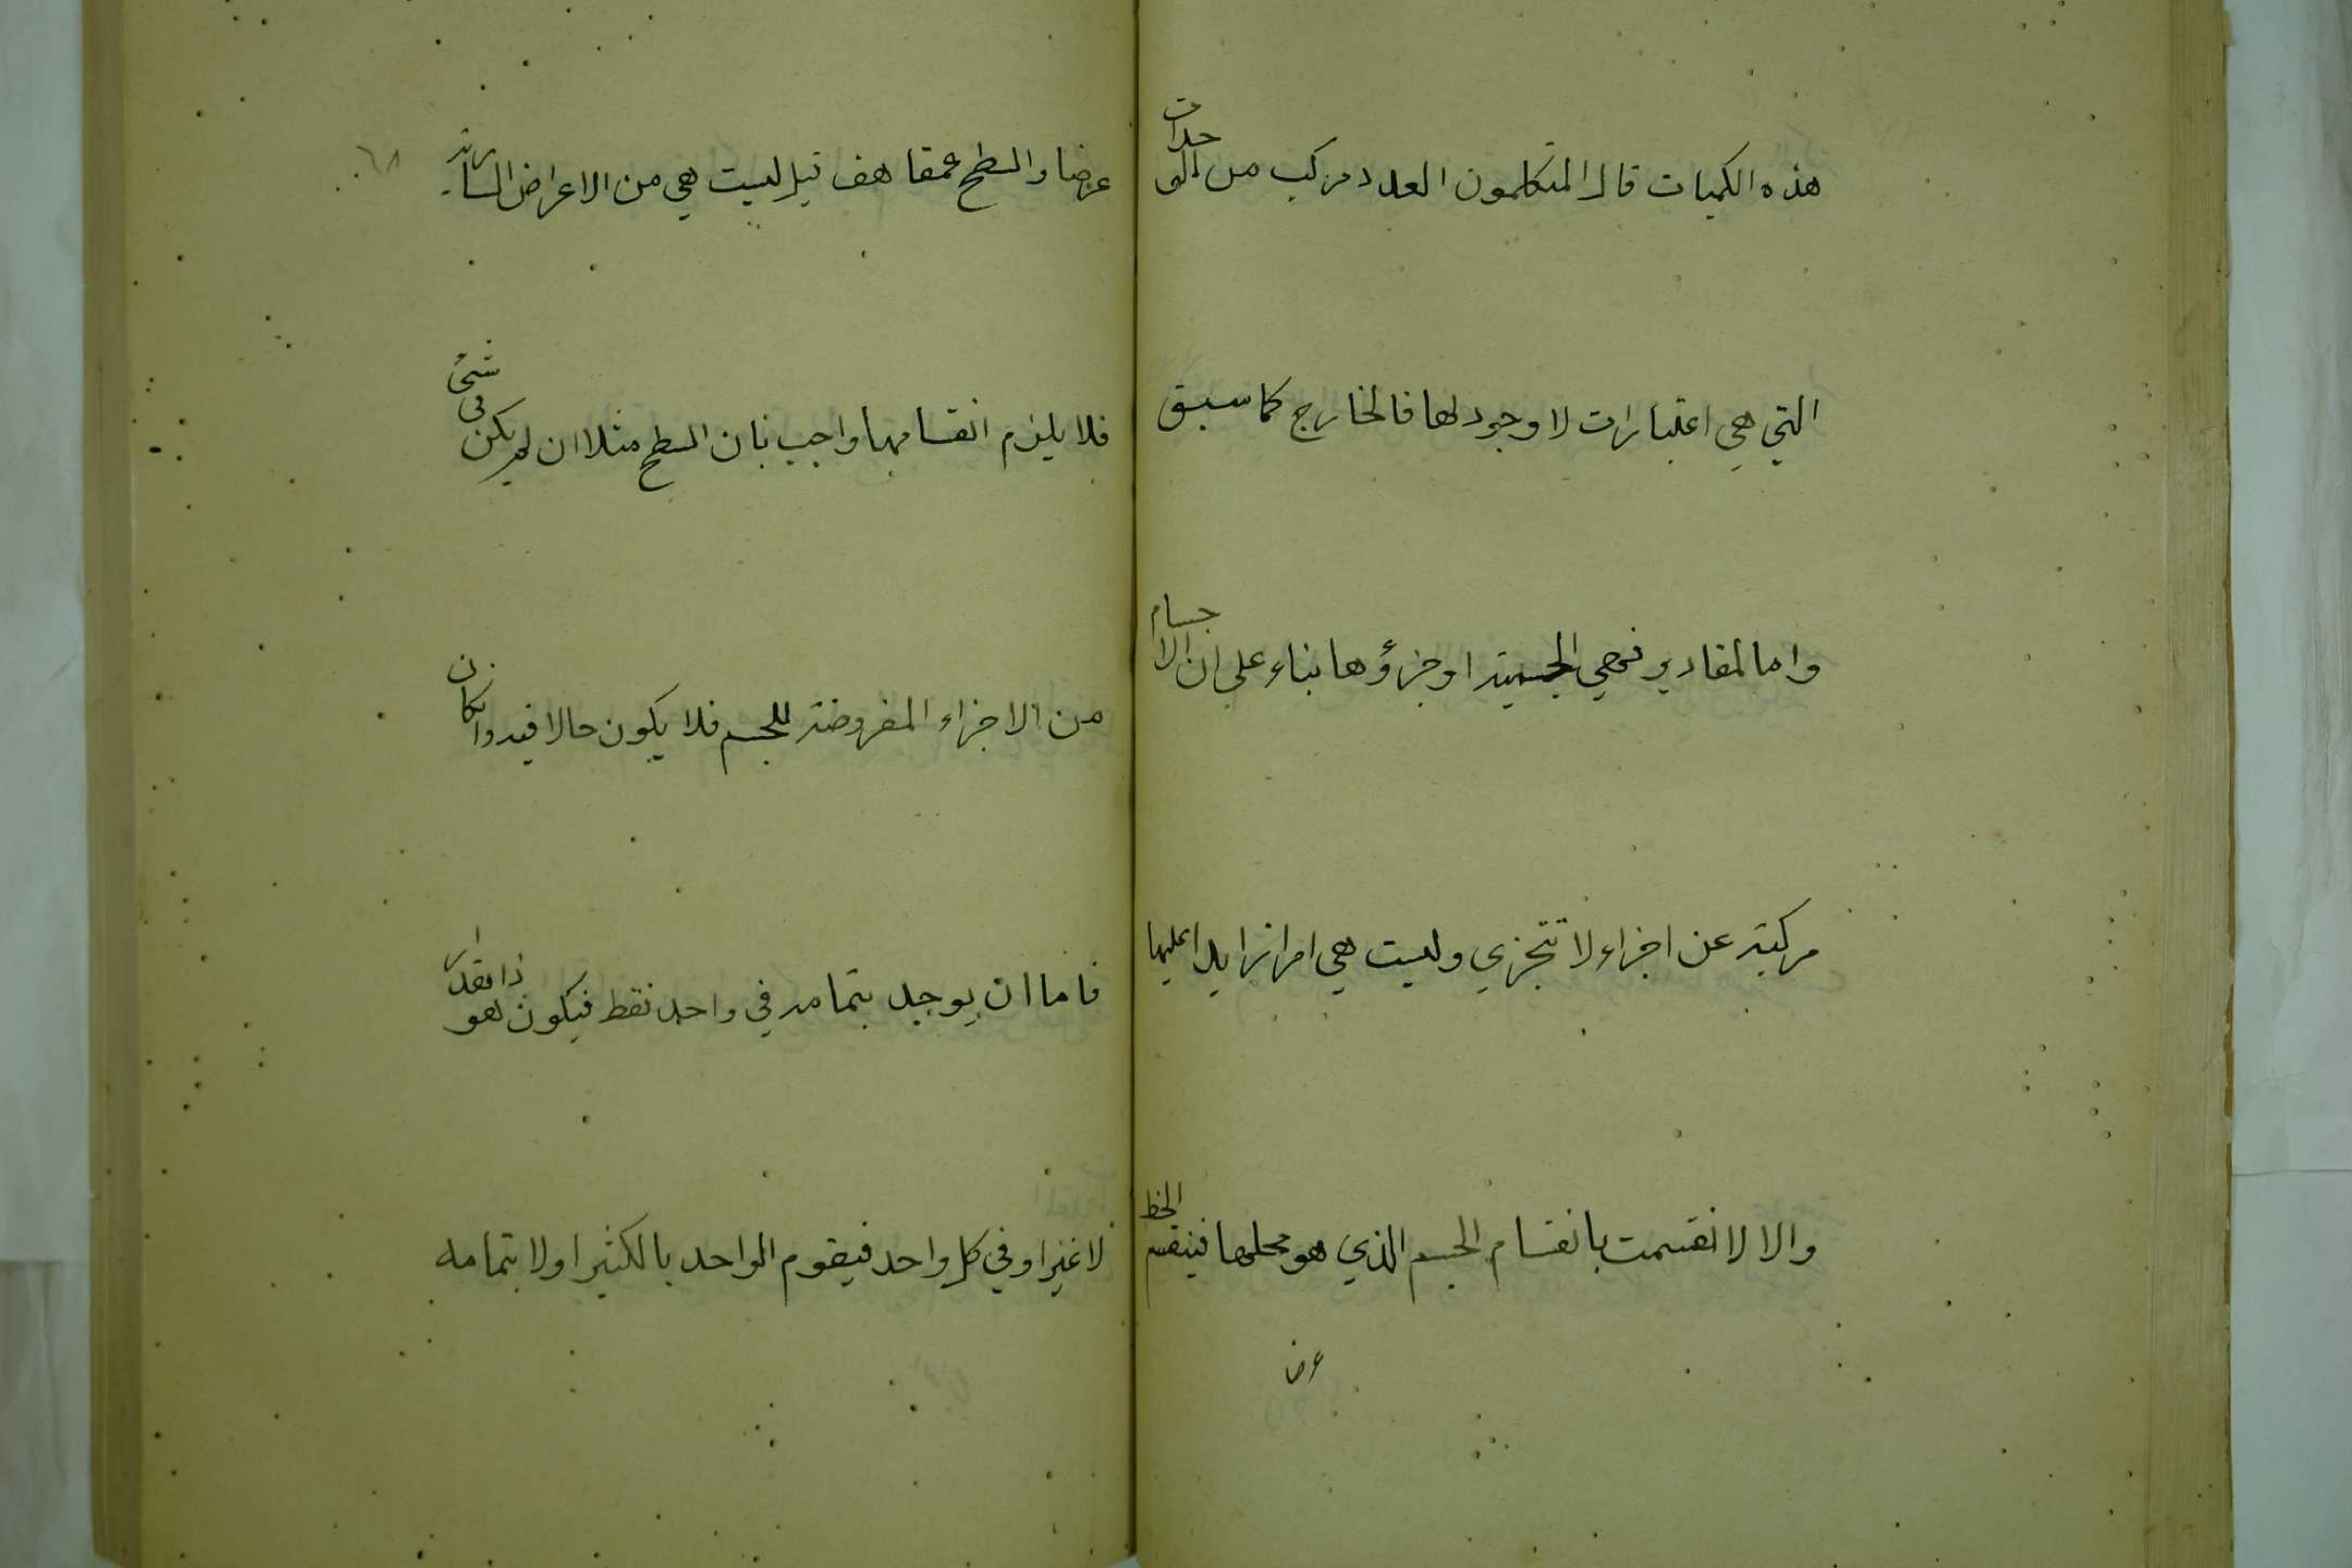 هذه الكميات قال المتكلمون العدد مركب من الوحدات
التي هي اعتبارات لا وجود لها فالخارج كما سبق
واما لمقادير فهي الجسمية او جزؤها بناء على ان الاجسام
مركبة عن اجزاء لا تتجزي وليست هي امرا زايدا عليها
والا لانقسمت بانقسام الجسم الذي هو محلها فينقسم الخط
عرضا
عرضا والسطح عمقا هف قيل ليست هي من الاعراض السارية
٦٨
فلا يلزم انقسامها واجيب بان السطح مثلا ان لم يكن في شئ
من الاجزاء المفروضة للجسم فلا يكون حالا فيه وان كان
فاما ان يوجد بتمامه في واحد فقط فيكون هو ذا مقدار
لا غير او في كل واحد فيقوم الواحد بالكثير او لا بتمامه